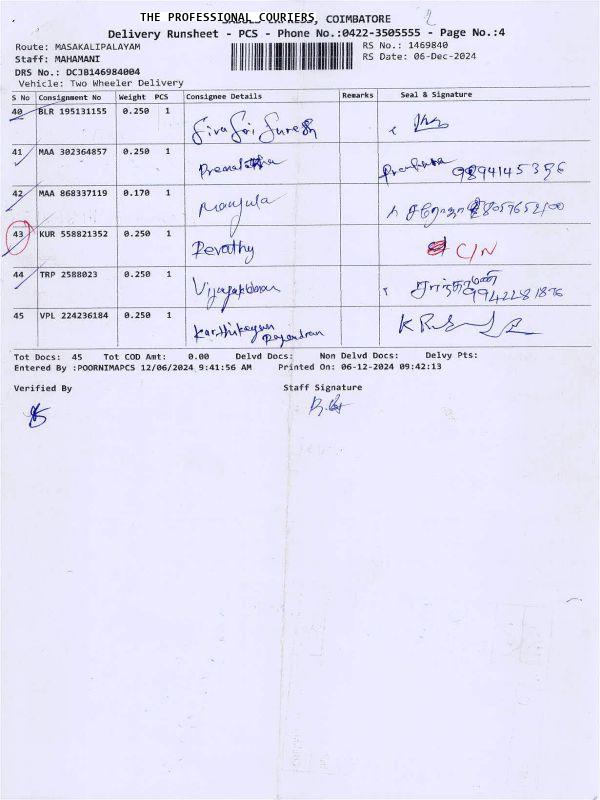 THE PROFESSIONAL COURIERS, COIMBATORE
Delivery Runsheet - PCS - Phone No.:0422-3505555 - Page No.:4
Route: MASAKALIPALAYAM RS No.: 1469840
Staff: MAHAMANI RS Date: 06-Dec-2024
DRS No.: DCJB146984004
Vehicle: Two Wheeler Delivery
S No Consignment No Weight PCS Consignee Details Remarks Seal & Signature
40 BLR 195131155 0.250 1 Siva Sri Suresh
41 MAA 302364857 0.250 1 Premalatha 9894145396
42 MAA 868337119 0.170 1 Manjula
43 KUR 558821352 0.250 1 Revathy C/N
44 TRP 2588023 0.250 1 சாந்தாமணி
45 VPL 224236184 0.250 1 Karthikeyan
Rajendran
Tot Docs: 45 Tot COD Amt: 0.00 Delvd Docs: Non Delvd Docs: Delvy Pts:
Entered By :POORNIMAPCS 12/06/2024 9:41:56 AM Printed On: 06-12-2024 09:42:13
Verified By Staff Signature